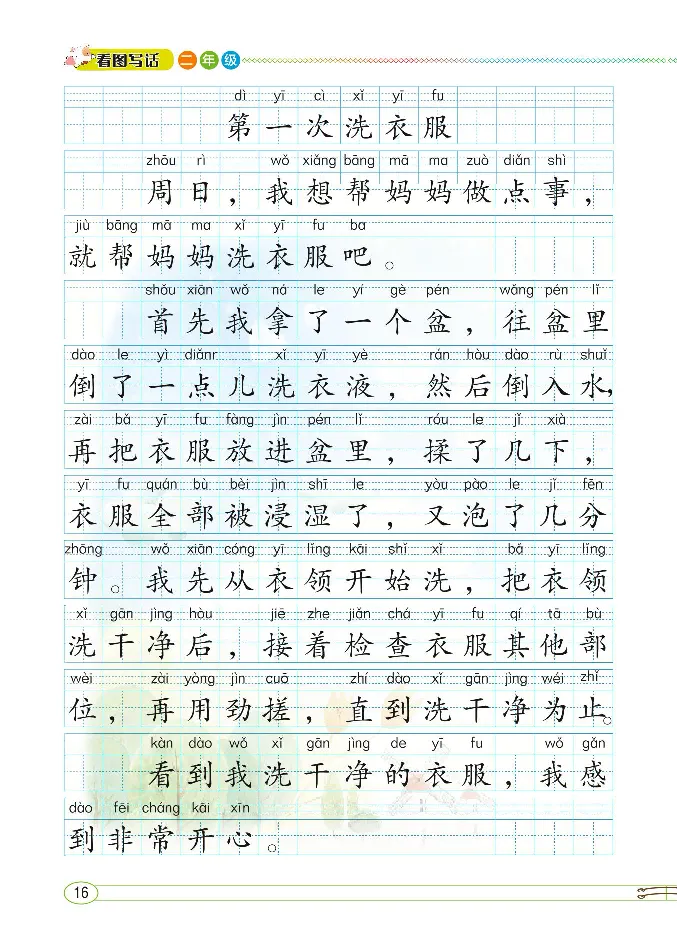 看图写话 二年级
dì yī cì xǐ yī fu
第一次洗衣服
zhōu rì wǒ xiǎng bāng mā ma zuò diǎn shì
周日，我想帮妈妈做点事，
jiù bāng mā ma xǐ yī fu ba
就帮妈妈洗衣服吧。
shǒu xiān wǒ ná le yí gè pén wǎng pén lǐ
首先我拿了一个盆，往盆里
dào le yì diǎnr xǐ yī yè rán hòu dào rù shuǐ
倒了一点儿洗衣液，然后倒入水，
zài bǎ yī fu fàng jìn pén lǐ róu le jǐ xià
再把衣服放进盆里，揉了几下，
yī fu quán bù bèi jìn shī le yòu pào le jǐ fēn
衣服全部被浸湿了，又泡了几分
zhōng wǒ xiān cóng yī lǐng kāi shǐ xǐ bǎ yī lǐng
钟。我先从衣领开始洗，把衣领
xǐ gān jìng hòu jiē zhe jiǎn chá yī fu qí tā bù
洗干净后，接着检查衣服其他部
wèi zài yòng jìn cuō zhí dào xǐ gān jìng wéi zhǐ
位，再用劲搓，直到洗干净为止。
kàn dào wǒ xǐ gān jìng de yī fu wǒ gǎn
看到我洗干净的衣服，我感
dào fēi cháng kāi xīn
到非常开心。
16